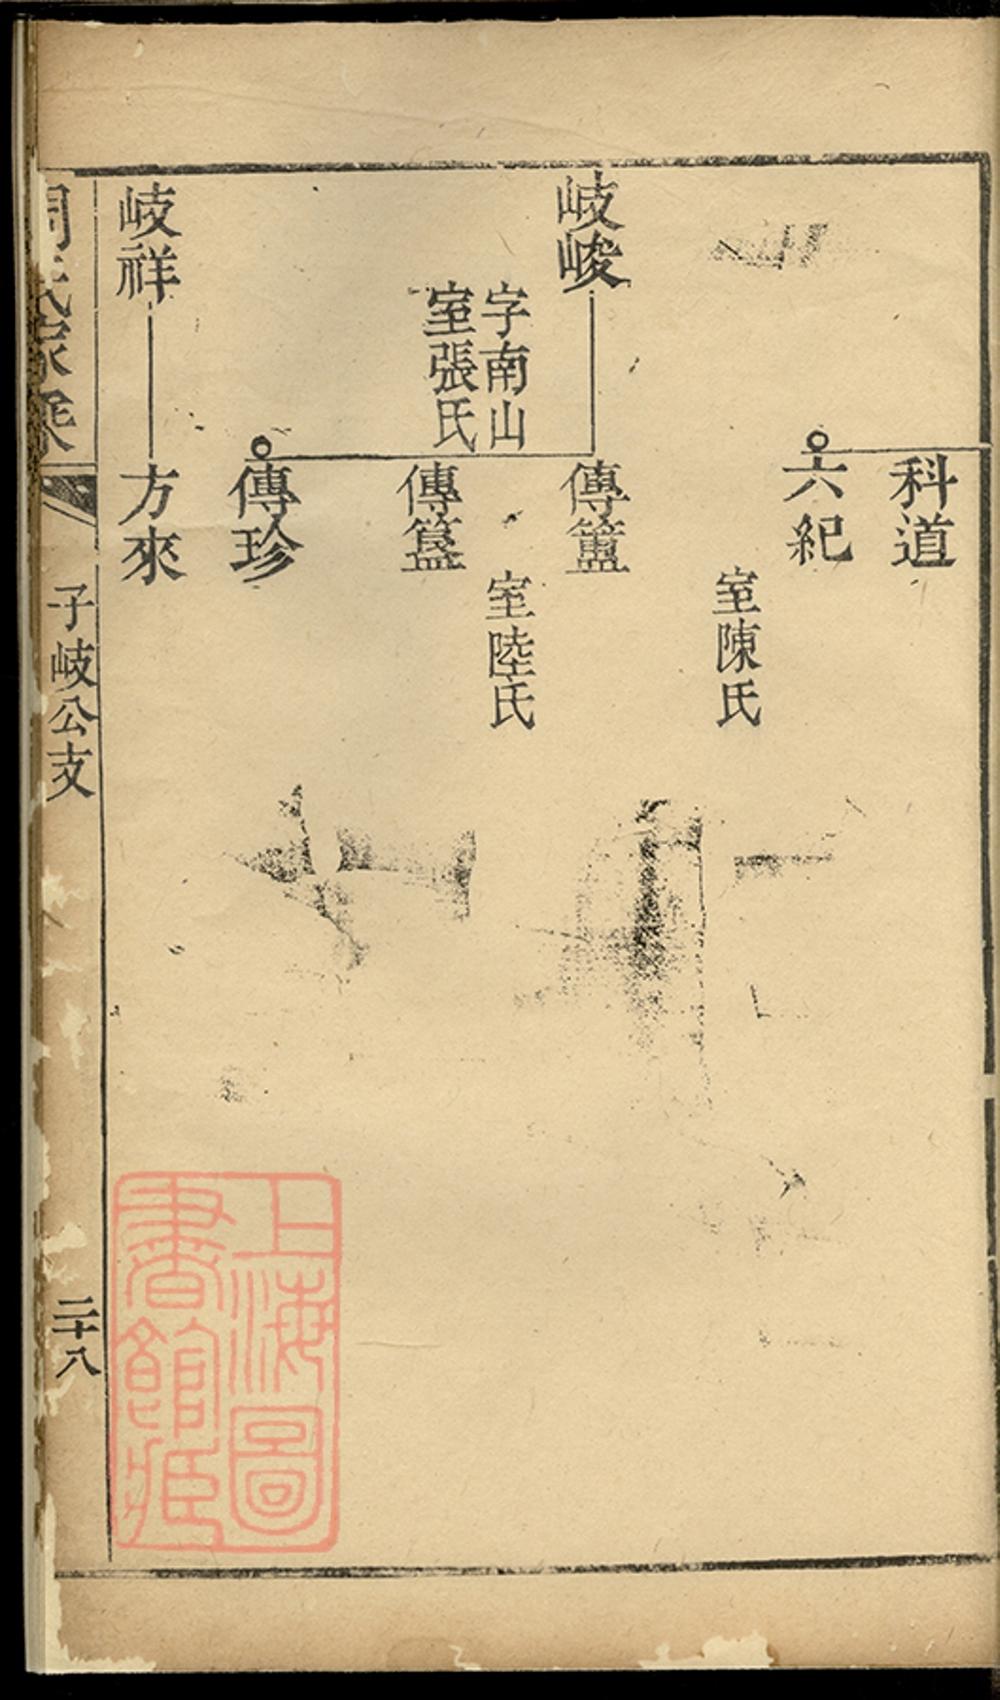 科道
六紀
室陳氏
岐峻
字南山
室張氏
傳簠
室陸氏
傳簋
傳珍
岐祥
方來
周氏家乘
子岐公支
二十八
上海圖
書館藏